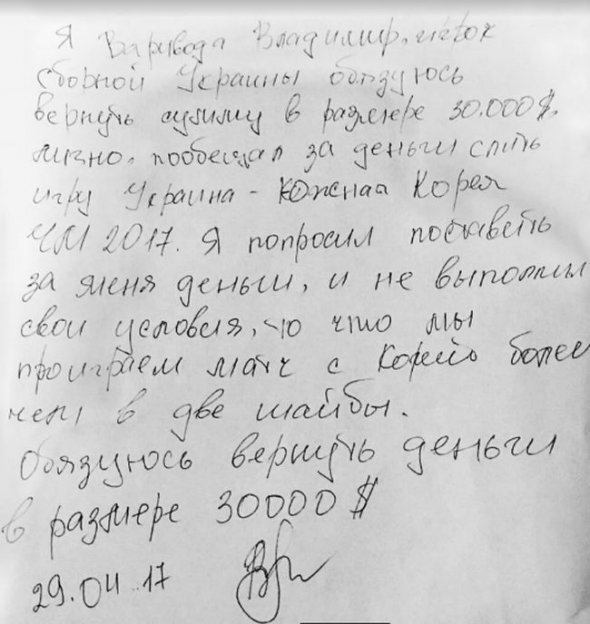 Я Варивода Владимир, игрок
сборной Украины обязуюсь
вернуть сумму в размере 30.000$,
лично, пообещал за деньги слить
игру Украина - Южная Корея
ЧМ 2017. Я попросил поставеть
за меня деньги, и не выполнил
свои условия, то что мы
проиграем матч с Кореей более
чем в две шайбы.
Обязуюсь вернуть деньги
в размере 30000$
29.04.17